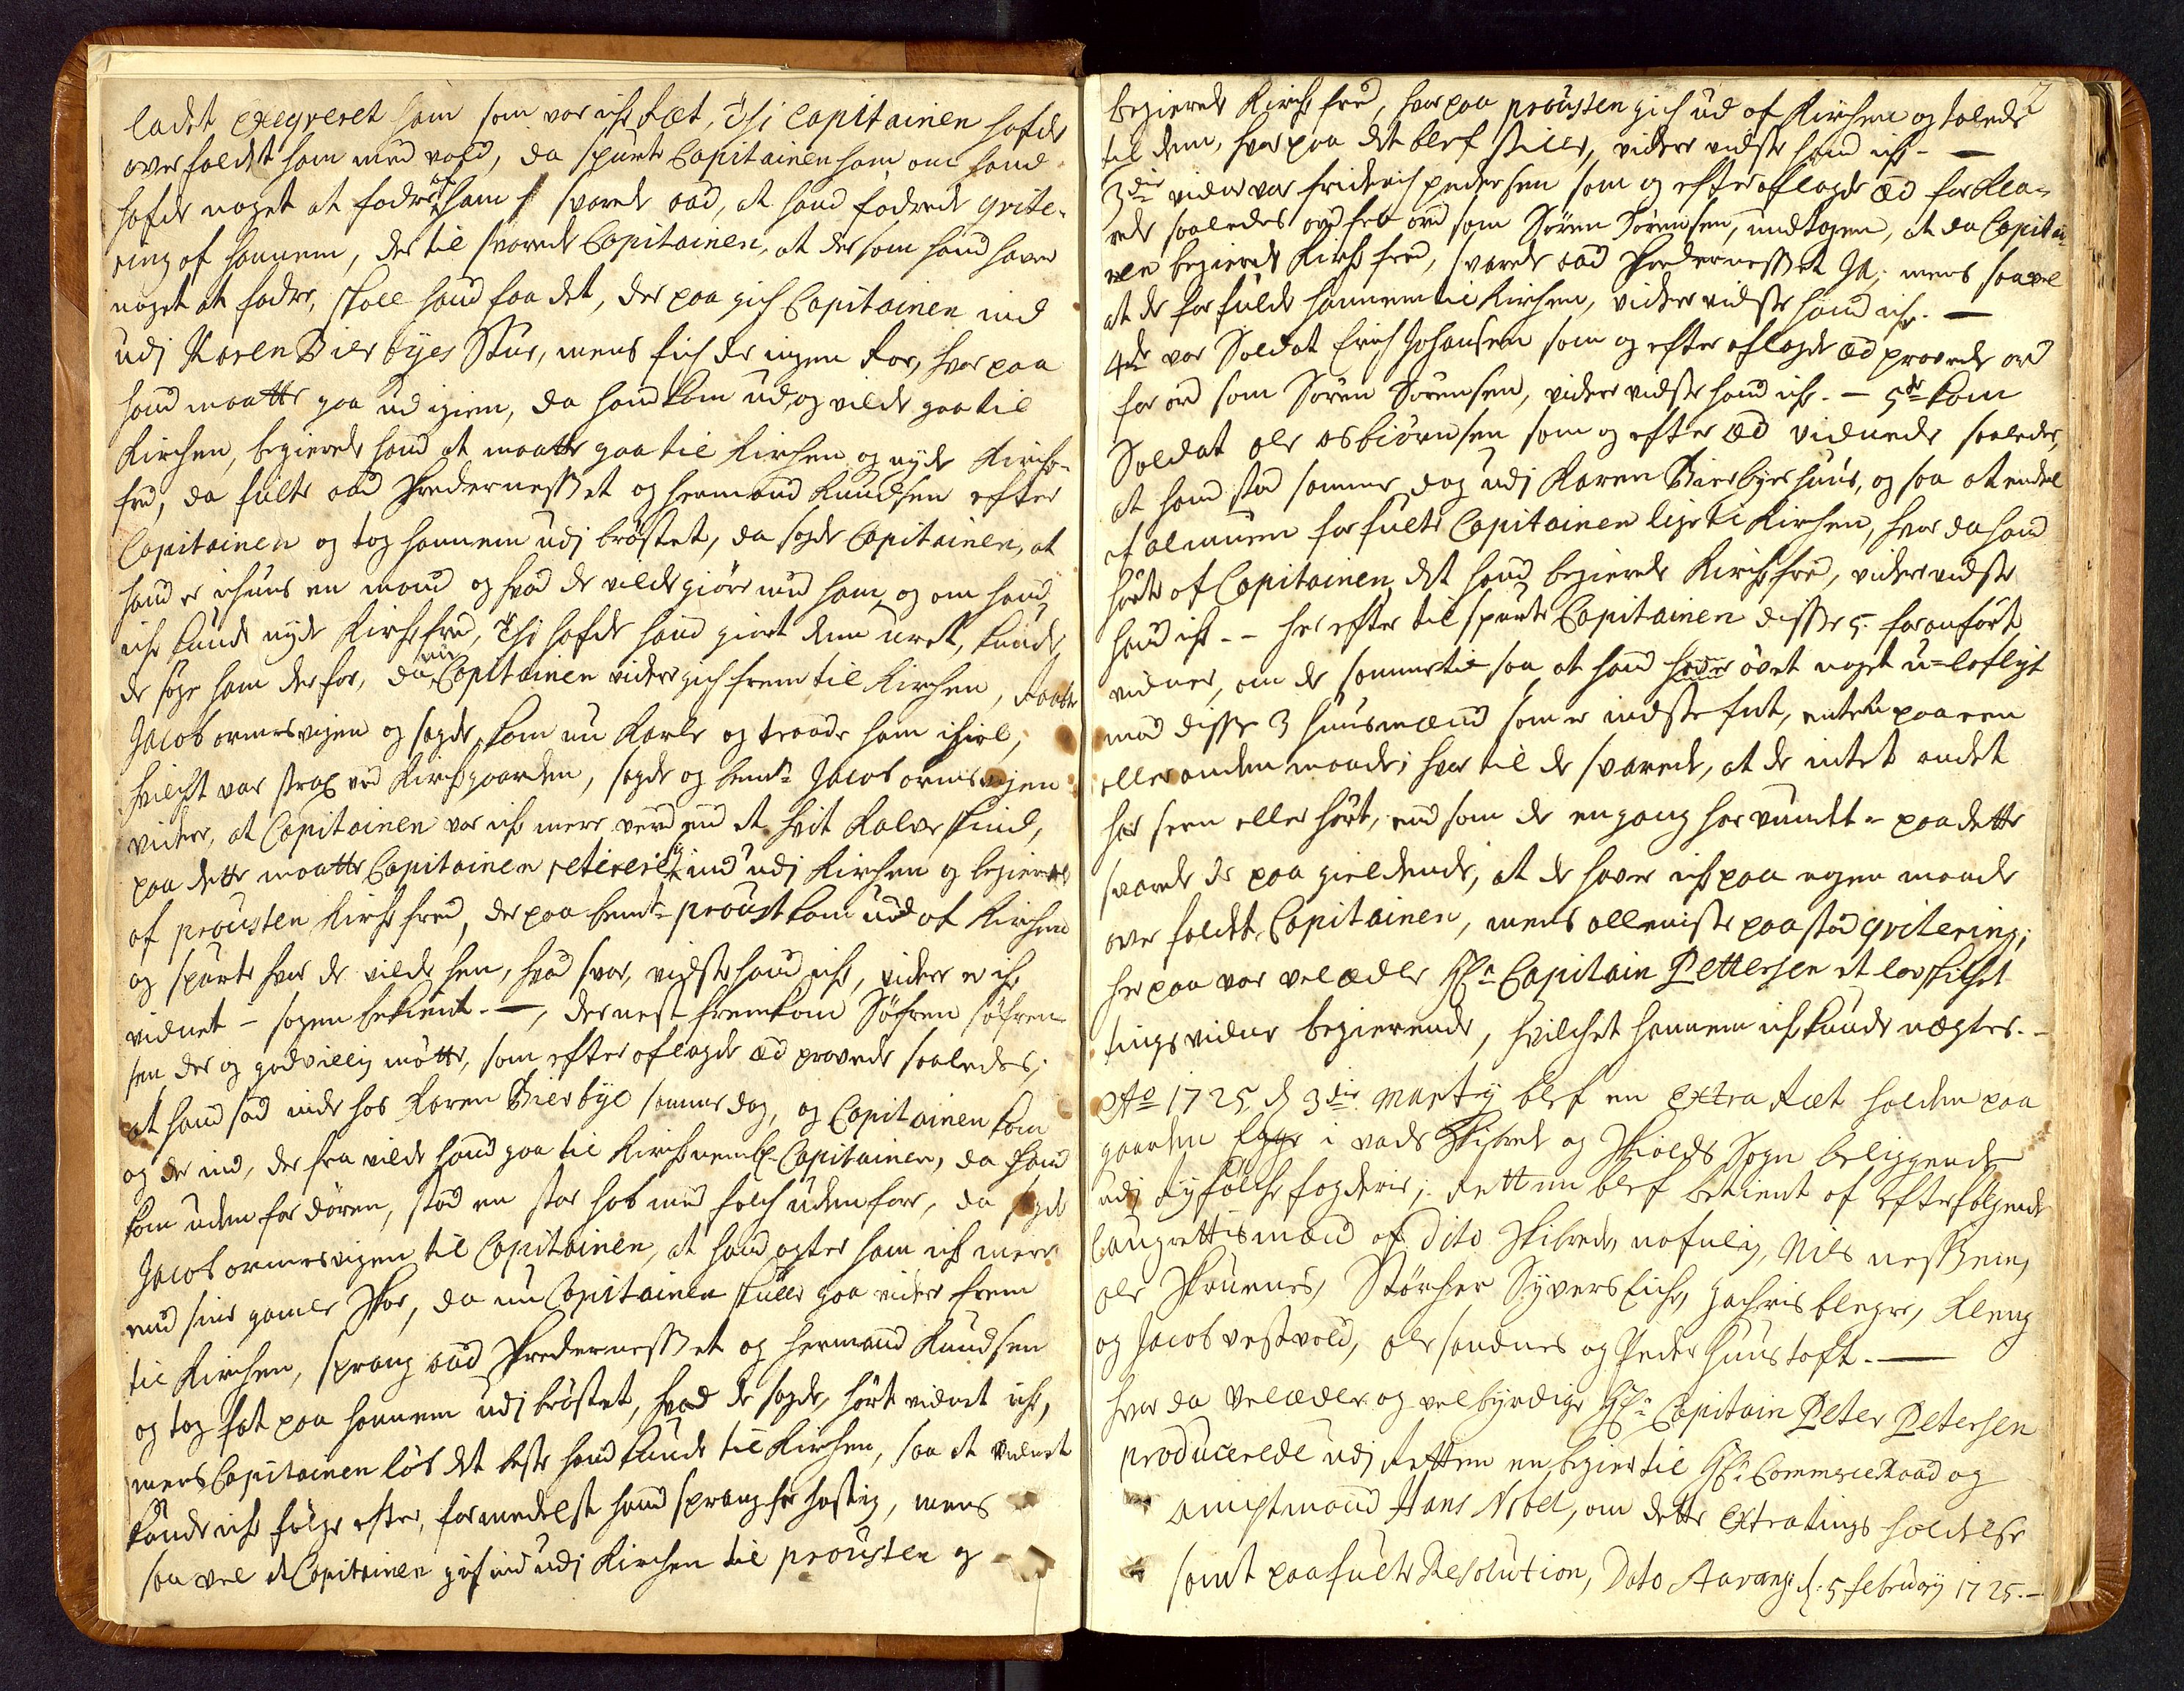 ladet exeqveret ham som var iche Ræt, Thi Capitainen hafde
overfaldet ham med vold, da spurte Capitainen ham om hand
hafde noget at fodre af ham, svarede aad, at hand fodrede qvite-
ring af hannem, der til svarede Capitainen, at dersom hand haver
noget at fodre, skall hand faa det, der paa gich Capitainen ind
udj Karen Bierbyes Stue, mens fich der ingen Roe, hvor paa
hand maatte gaa ud igien, da hand kom ud, og vilde gaa til
Kirchen, begierede hand at maatte gaa til Kirchen og nyde Kirche-
fred, da fulte aad Skredernesset og Hermand Knudsen efter
Capitainen og tog hannem udj brøstet, da sagde Capitainen, at
hand er ichuns en mand og hvad de vilde giøre med ham, og om hand
iche kunde nyde Kirchefred, Thi hafde hand giort dem uret, kunde
de søge ham derfor, da nu Capitainen videre gich frem til Kirchen, Raabte
Jacob ormesvigen og sagde, kom nu Karle og traade ham ihiel,
hvilchet var strax ved Kirchegaarden, sagde og bemte Jacob ormesvigen
videre, at Capitainen var iche mere verd end et hvit Kalveskind,
paa dette maatte Capitainen retirere sig ind udj Kirchen og begierede
af provsten Kirchefred, der paa bemte provst kom ud af Kirchen
og spurte hvor de vilde hen, hvad svar, vidste hand iche, videre er iche
vidnet - sagen bekient. -, dernest fremkom Søfren Søfren-
sen der og godvillig møtte, som efter aflagde æd provede saaledes,
at hand sad inde hos Karen Bierbye samme dag, og Capitainen kom
og der ind, der fra vilde hand gaa til Kirche nembl. Capitainen, da hand
kom uden for døren, stod en stor hob med folch uden fore, da sagde
Jacob ormesvigen til Capitainen, at hand agter ham iche mere
end sine gamle Skoe, da nu Capitainen skulle gaa videre frem
til Kirchen, sprang aad Skredernesset og Hermand Knudsen
og tog fat paa hannem udj brøstet, hvad de sagde, hørt vidnet iche,
mens Capitainen løb det beste hand kunde til Kirchen, saa at vidnet
kunde iche følge efter, formedelst hand sprang saa hastig, mens
saa vel at Capitainen gich ind udj Kirchen til provsten og
2
begierede Kirche fred, hvor paa provsten gich ud af Kirchen og talede
til dem, hvor paa det blef stille, videre vidste hand iche. -
3die vidne var Friderich Pedersen som og efter aflagde æd forkla-
rede saaledes ord for ord som Søren Sørensen, undtagen, at da Capitai-
nen begierede Kirche fred, svarede aad Skredernesset Ja, mens saavel
at de forfulde hannem til Kirchen, videre vidste hand iche. -
4de var Soldat Erich Johansen som og efter aflagde æd provede ord
for ord som Søren Sørensen, videre vidste hand iche. - 5te kom
Soldat ole asbiørnsen som og efter æd vidnede saaledes,
at hand stod samme dag udj Karen Bierbyes huus, og saa at endel
af almuen forfulte Capitainen lige til Kirchen, hvor da hand
hørte af Capitainen, det hand begierede Kirche fred, videre vidste
hand iche. - her efter tilspurte Capitainen disse 5. foranførte
vidner, om de sommetid saa at hand hafde øvet noget u-lofligt
mod disse 3 huusmænd som er indstefnt, enten paa een
eller anden maade; hvor til de svarede, at de intet andet
har seen eller hørt, end som de engang har vundet - paa dette
svarede de paa gieldende, at de haver iche paa nogen maade
overfaldet Capitainen, mens alleniste paastod qvitering;
her paa var velædle Hr. Capitain Pettersen et lovskichet
tingsvidne begierende, hvilchet hannem iche kunde nægtes. -
Ao 1725. d 3die Marty blef en extra Ræt holden paa
gaarden Egge i vads Skibrede og Skiolds Sogn beliggende
udj Ryfølche fogderie; Retten blef betient af efterfølgende
laugrettismænd af Dito Skibrede, nafnlig, Nils nessem,
ole Skruenes, Størcher Syvers Eiche, Zachris blegre, Kleng
og Jacob vestvold, ole sandnes og Peder Huustoft. -
Hvor da velædle og velbyrdige Hr. Capitain Peter Petersen
producerede udj Retten en begier til Hr. Commerceraad og
amptmand Hans Nobel, om dette extratings holdelse
samt paafulte Resolution, Dato Stavang: d. 5 february 1725. -